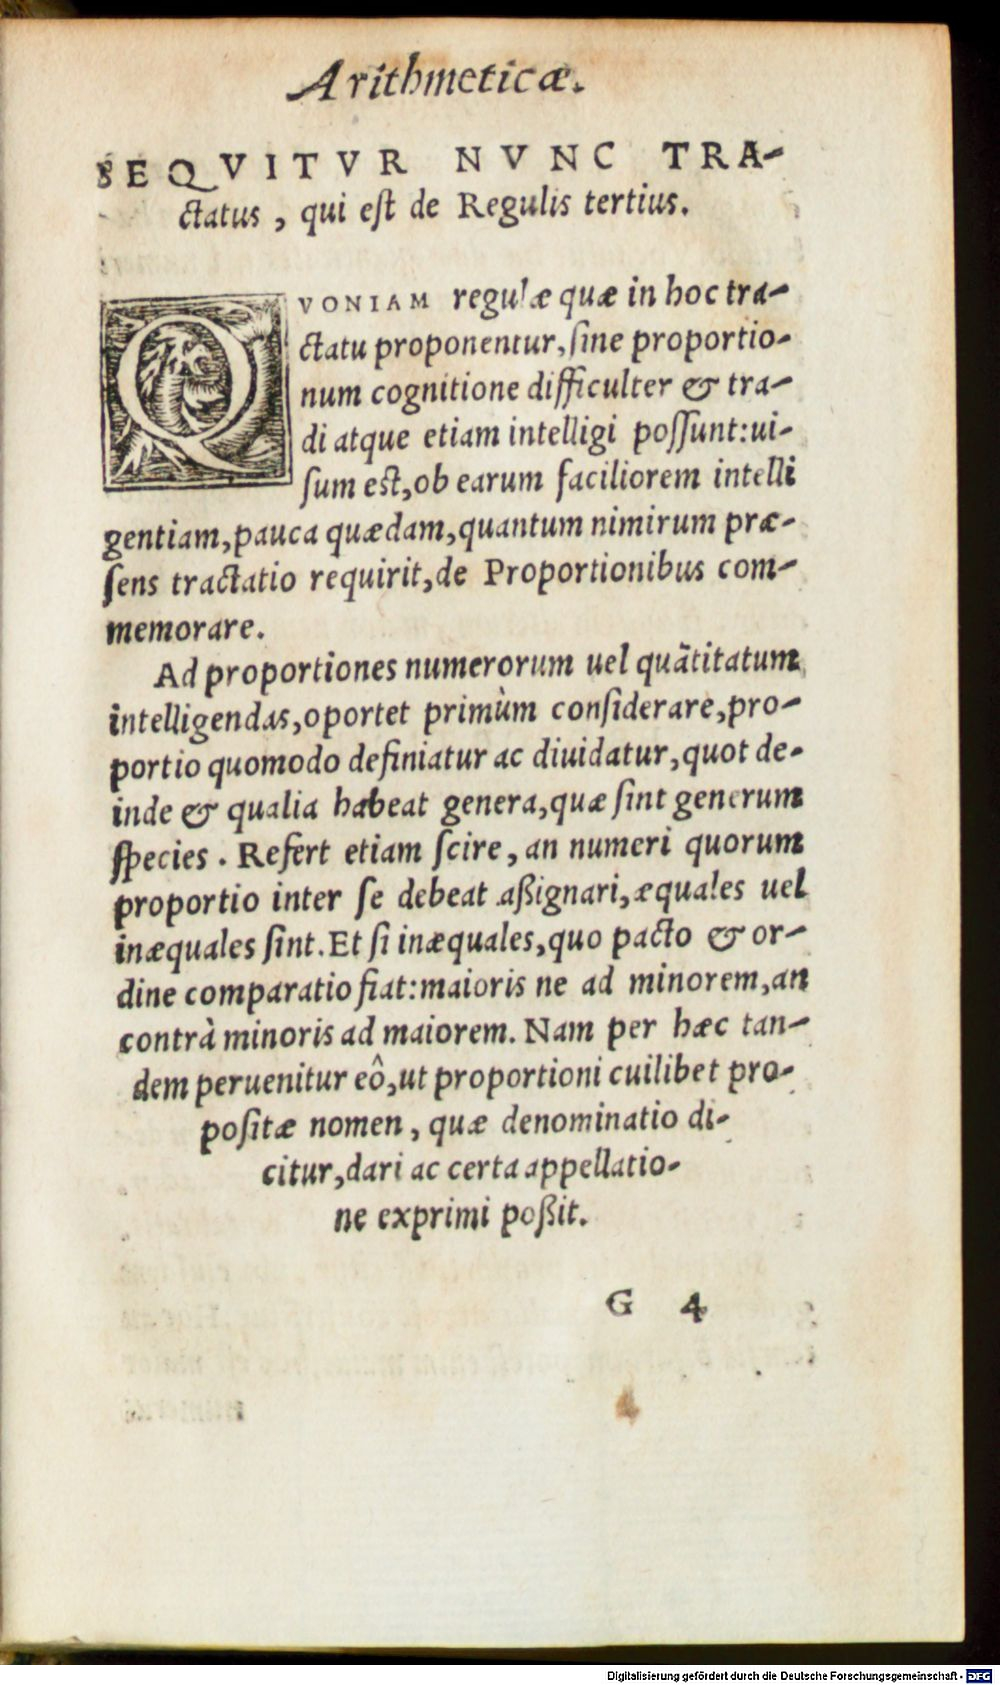 Arithmeticæ.
SEQVITVR NVNC TRA-
ctatus, qui eſt de Regulis tertius.
QVONIAM regulæ quæ in hoc tra-
ctatu proponentur, ſine proportio-
num cognitione difficulter & tra-
di atque etiam intelligi poſſunt: ui-
ſum est, ob earum faciliorem intelli
gentiam, pauca quædam, quantum nimirum præ-
ſens tractatio requirit, de Proportionibus com-
memorare.
Ad proportiones numerorum uel quãtitatum
intelligendas, oportet primùm conſiderare, pro-
portio quomodo definiatur ac diuidatur, quot de-
inde & qualia habeat genera, quæ ſint generum
ſpecies. Refert etiam ſcire, an numeri quorum
proportio inter ſe debeat aßignari, æquales uel
inæquales ſint. Et ſi inæquales, quo pacto & or-
dine comparatio fiat: maioris ne ad minorem, an
contrà minoris ad maiorem. Nam per hæc tan-
dem peruenitur eô, ut proportioni cuilibet pro-
poſitæ nomen, quæ denominatio di-
citur, dari ac certa appellatio-
ne exprimi poßit.
G 4
Digitalisierung gefördert durch die Deutsche Forschungsgemeinschaft - DFG